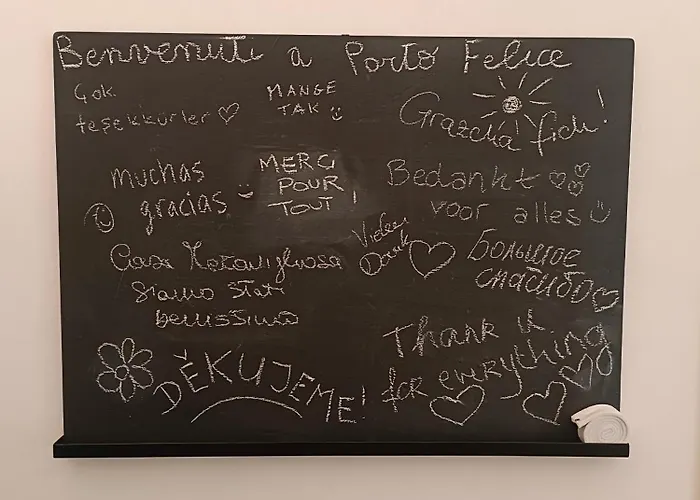 Benvenuti a Porto Felice
Çok
teşekkürler
MANGE
TAK
Grazcha fich!
muchas
gracias
MERCI
POUR
TOUT!
Bedankt
voor alles
Casa
Siamo stati
benissimo
Vielen
Dank
Большое
спасибо
DĚKUJEME!
Thank U
for everything